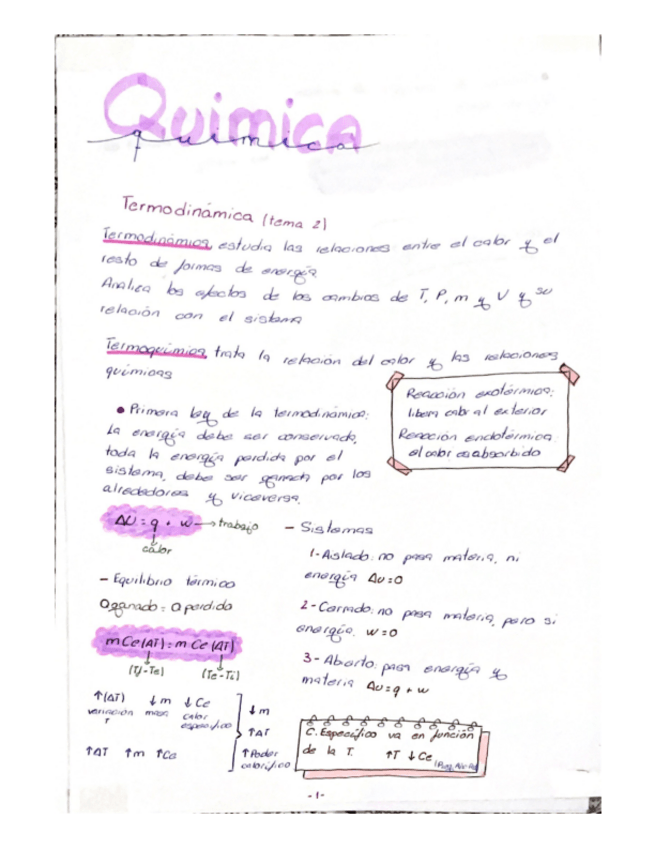 Quimica
quimica
Termodinámica (tema 2)
Termodinámica, estudia las relaciones entre el calor y el
resto de formas de energía.
Analiza los efectos de los cambios de T, P, m y V y su
relación con el sistema
Termoquímica, trata la relación del calor y las relaciones
químicas
Reacción exotérmica:
libera calor al exterior
Reacción endotérmica:
el calor es absorbido
• Primera ley de la termodinámica:
La energía debe ser conservada,
toda la energía perdida por el
sistema, debe ser ganada por los
alrededores y viceversa.
ΔU = q + w → trabajo
calor
- Equilibrio térmico
Q ganado = Q perdido
m Ce (ΔT) = m Ce (ΔT)
(Tf-Te) (Te-Ti)
↑(ΔT) ↓m ↓Ce
variación masa calor
T específico
↑ΔT ↑m ↑Ce
↓m
↑ΔT
↑Poder
calorífico
- Sistemas
1- Aislado: no pasa materia, ni
energía ΔU=0
2- Cerrado: no pasa materia, pero si
energía. w=0
3- Abierto: pasa energía y
materia ΔU=q + w
C. Específico va en función
de la T. ↑T ↓Ce
-1-